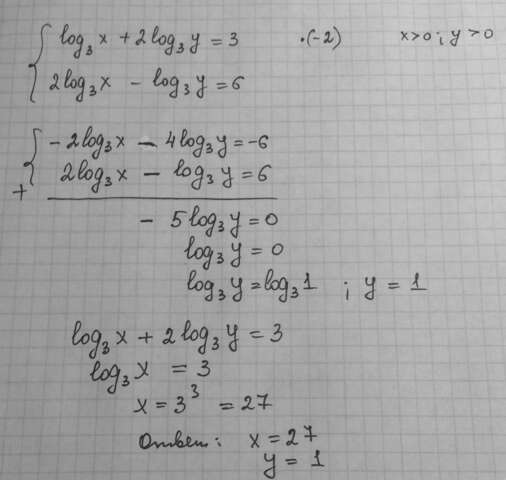 log₃x + 2log₃y = 3 ·(-2) x>0 ; y>0
2log₃x - log₃y = 6
-2log₃x - 4log₃y = -6
+ 2log₃x - log₃y = 6
- 5log₃y = 0
log₃y = 0
log₃y = log₃1 ; y = 1
log₃x + 2log₃y = 3
log₃x = 3
x = 3³ = 27
Ответ: x = 27
y = 1